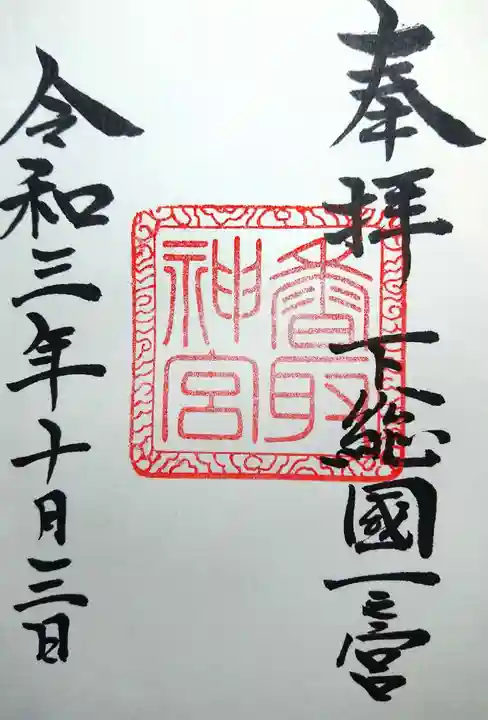 奉拝 下總國一之宮
香取
神宮
令和三年十月三日